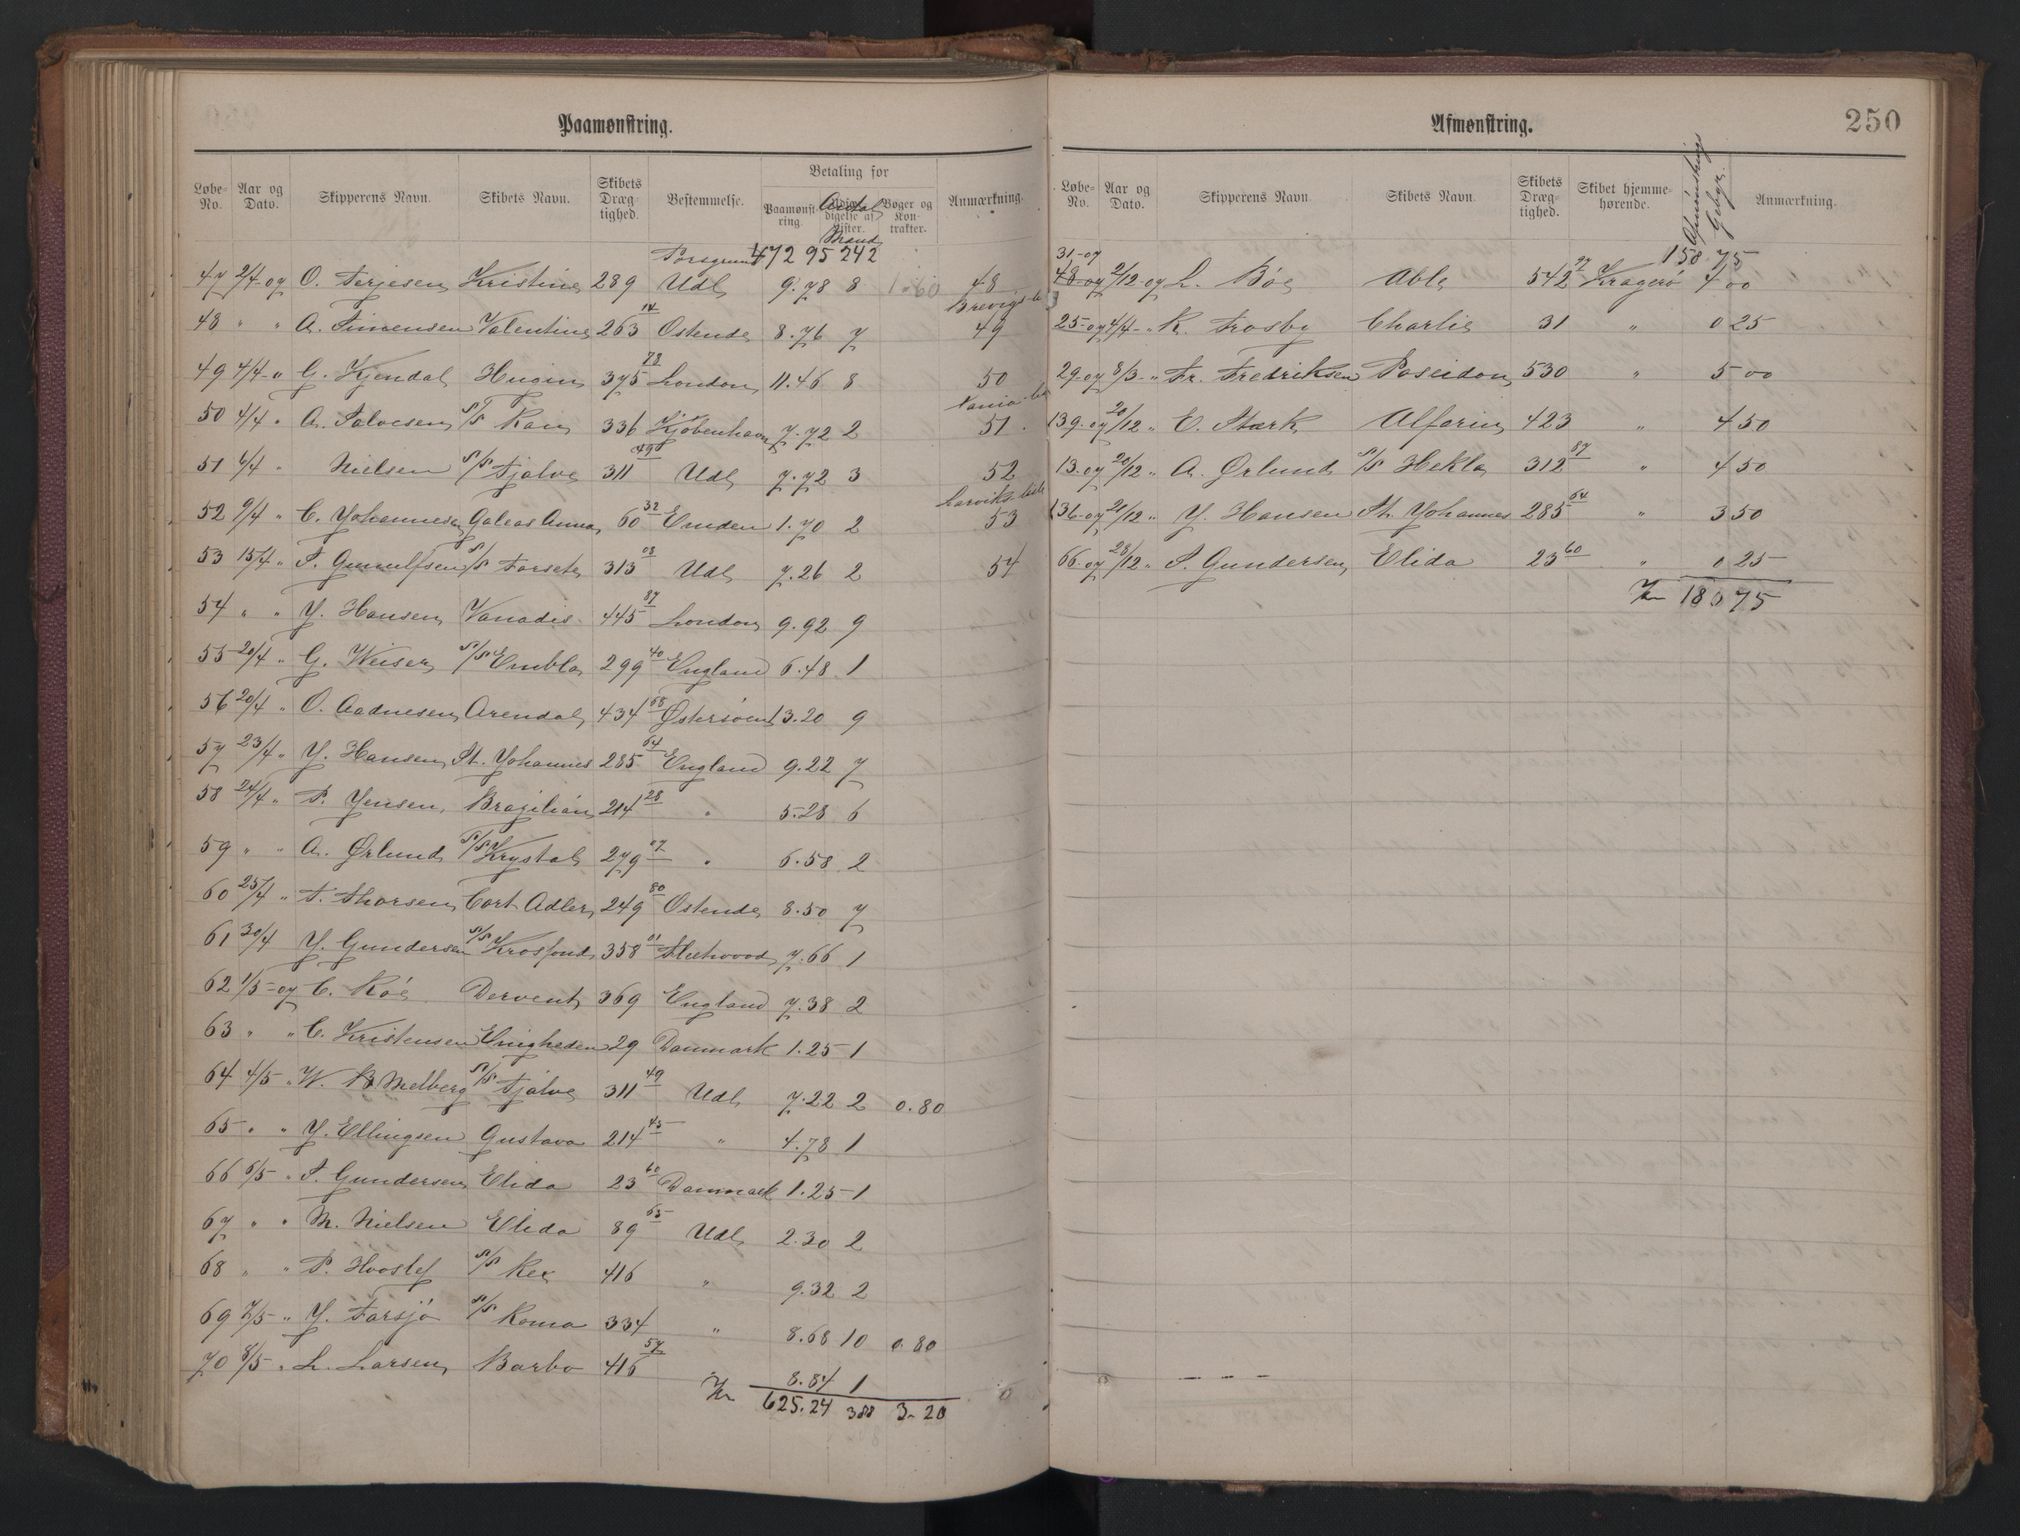 Paamønstring.
Løbe-No. Aar og Dato. Skipperens Navn. Skibets Navn. Skibets Dræg-tighed. Bestemmelse. Betaling for Paamønst-ring. Antal Mand Bøger og Kon-trakter. Anmærkning.
Porsgrund 472 95 242
47 2/4-07 O. Terjesen Kristine 289 Udl 9.78 8 1.60 48
Brevigs
48 " " A. Simensen Valentine 263 14 Ostende 8.76 7 49
49 4/4 - " G. Kjendal Hugin 375 78 London 11.46 8 50
50 4/4 " A. Salvesen S/S Ran 336 Kjøbenhavn 7.72 2 51
51 6/4 " Nielsen S/S Fjalve 311 49 Udl 7.72 3 52
Larviks liste
52 9/4 " C. Johannesen Galeas Anna 60 32 Emden 1.70 2 53
53 15/4 " S. Gunulfsen S/S Forsete 313 08 Udl 7.26 2 54
54 " " J. Hansen Vanadis 445 87 London 9.92 9
55 20/4 " G. Weiser S/S Embla 299 40 England 6.48 1
56 20/4 " O. Aadnesen Arendal 434 68 Østersøen 13.20 9
57 23/4 " J. Hansen St. Johannes 285 64 England 9.22 7
58 24/4 " P. Jensen Brazilian 214 28 " 5.28 6
59 " " A. Ørlund S/S Krystal 279 07 " 6.58 2
60 25/4 " T. Thorsen Cort Adler 249 80 Ostende 8.50 7
61 30/4 J. Gundersen S/S Krosfond 358 01 Fleetwood 7.66 1
62 1/5-07 C. Röe Dervent 369 England 7.38 2
63 " " C. Kristensen Enigheden 29 Danmark 1.25 1
64 4/5 " W. B Melberg S/S Fjalve 311 49 Udl 7.22 2 0.80
65 " " J. Ellingsen Gustava 214 45 " 4.78 1
66 6/5 " S. Gundersen Elida 23 60 Danmark 1.25 1
67 " " M. Nielsen Elida 89 65 Udl 2.30 2
68 " " P. Hvoslef S/S Rex 416 " 9.32 2
69 7/5 " J. Farsjø S/S Roma 334 " 8.68 10 0.80
70 8/5 " L. Larsen Barbo 416 57 8.84 1
Kr 625.24 388 3.20
Afmønstring.
250
Løbe-No. Aar og Dato. Skipperens Navn. Skibets Navn. Skibets Dræg-tighed. Skibet hjemme-hørende. Afmønstrings Gebyr. Anmærkning.
158 75
31-07
48-07 2/12-07 L. Bøe Abla 542 97 Kragerø 4 00
25-07 4/4 - " K. Frosby Charlie 31 " 0 25
29-07 8/3 - " Fr. Fredriksen Poseidon 530 " 5 00
139-07 20/12 " E. Stærk Alfarin 423 " 4 50
13-07 20/12 " A. Ørlund S/S Hekla 312 87 " 4 50
136-07 21/12 " J. Hansen St. Johannes 285 64 " 3 50
66-07 28/12 " S. Gundersen Elida 23 60 " 0 25
Kr 180 75